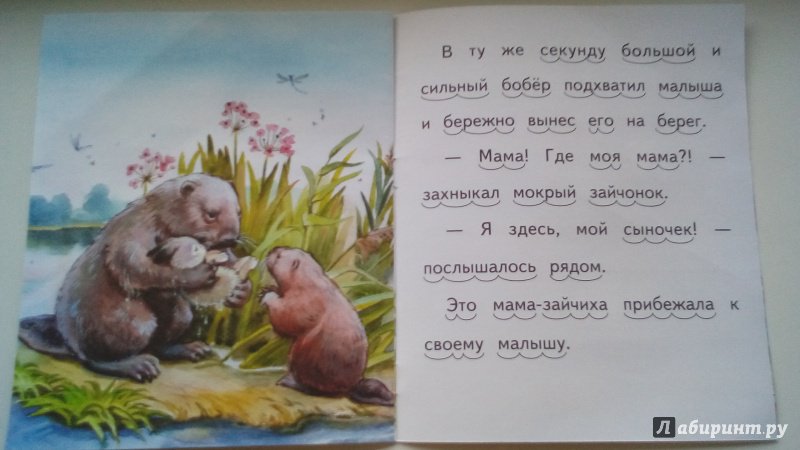 В ту же секунду большой и
сильный бобёр подхватил малыша
и бережно вынес его на берег.
— Мама! Где моя мама?! —
захныкал мокрый зайчонок.
— Я здесь, мой сыночек! —
послышалось рядом.
Это мама-зайчиха прибежала к
своему малышу.
Лабиринт.ру